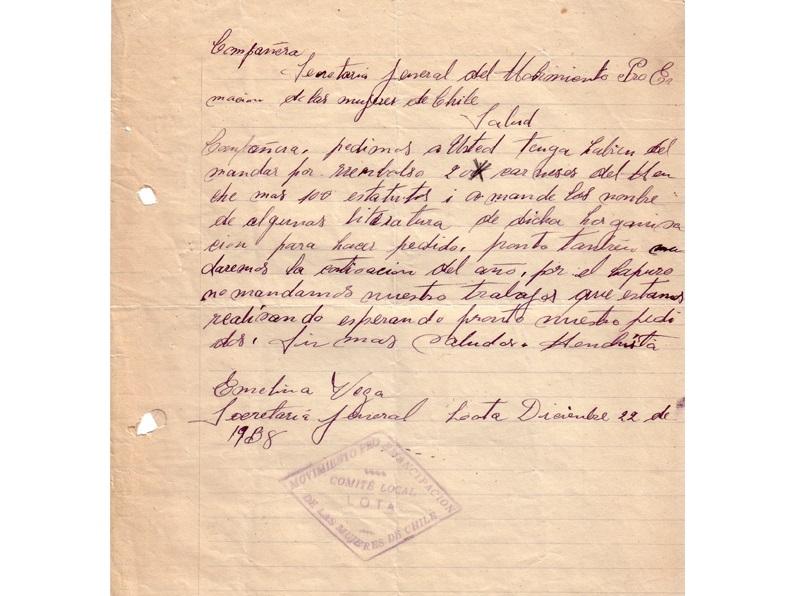 Compañera
Secretaria General del Mobimiento Pro E
macion de las mujeres de Chile
Salud
Compañera, pedimos a Usted tenga habien del
mandar por rrembolso 20 carneses del Men
che mas 100 estatutos i a mande los nombre
de algunas literatura de dicha horganisa
cion para hacer pedido, pronto tanbien man
daremos la cotisacion del año, por el hapuro
no mandamos nuestro trabajos que estamos
realisando esperando pronto nuestro pedi
dos, Sin mas saludos. Menchista
Emelina Vega
Secretaria General Loota Diciembre 22 de
1938
MOVIMIENTO PRO EMANCIPACION
COMITÉ LOCAL
LOTA
DE LAS MUJERES DE CHILE